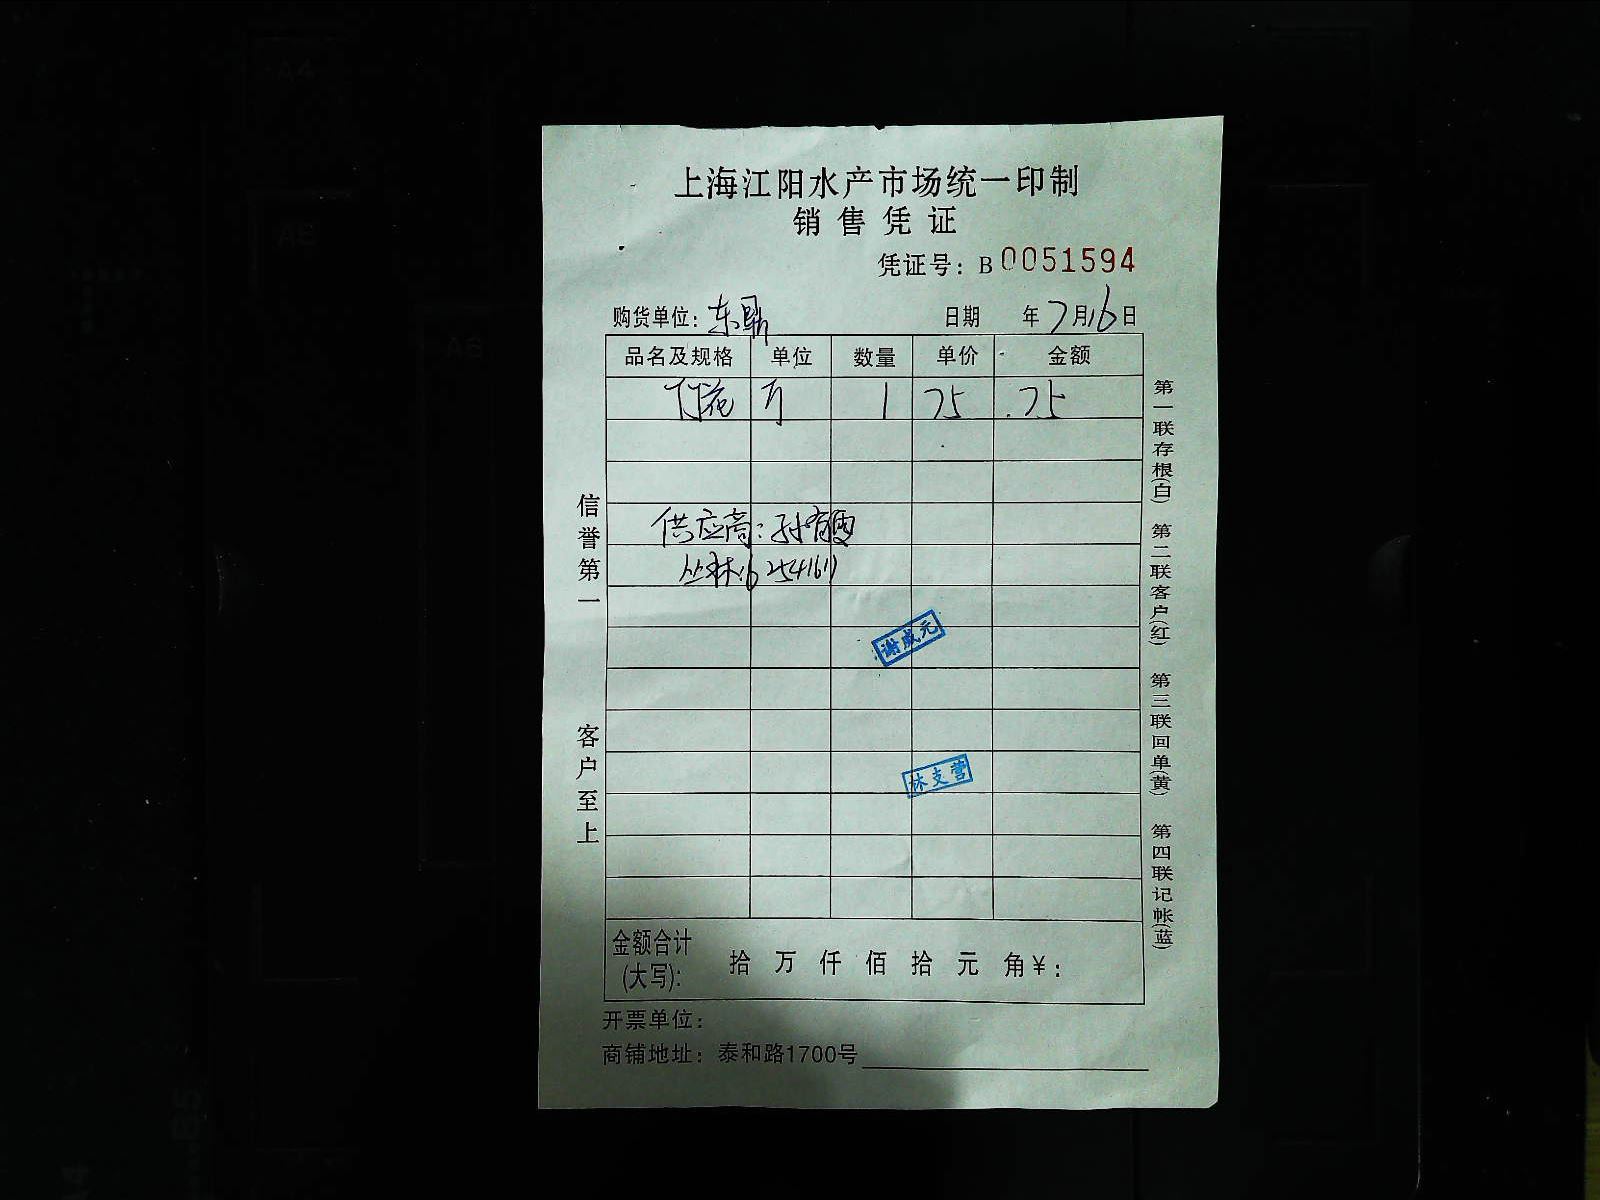 上海江阳水产市场统一印制
销售凭证
凭证号：B0051594
购货单位：东鼎 日期 年7月16日
品名及规格 单位 数量 单价 金额
花 1 75 75
供应商：孙
2541611
谢成元
林支营
金额合计(大写)： 拾 万 仟 佰 拾 元 角￥：
开票单位：
商铺地址：泰和路1700号
信誉第一
客户至上
第一联存根(白)
第二联客户(红)
第三联回单(黄)
第四联记帐(蓝)
A4
A5
A6
B5